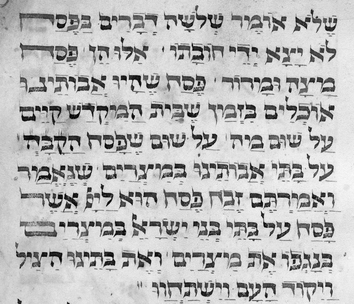 שלא אומר שלשה דברים בפסח
לא יצא ידי חובתו אלו הן פסח
מצה ומרור פסח שהיו אבותינו
אוכלים בזמן שבית המקדש קיים
על שום מה על שום שפסח הקבה
על בתי אבותינו במצרים שנאמר
ואמרתם זבח פסח הוא ליי אשר
פסח על בתי בני ישראל במצרים
בנגפו את מצרים ואת בתינו הציל
ויקוד העם וישתחוו